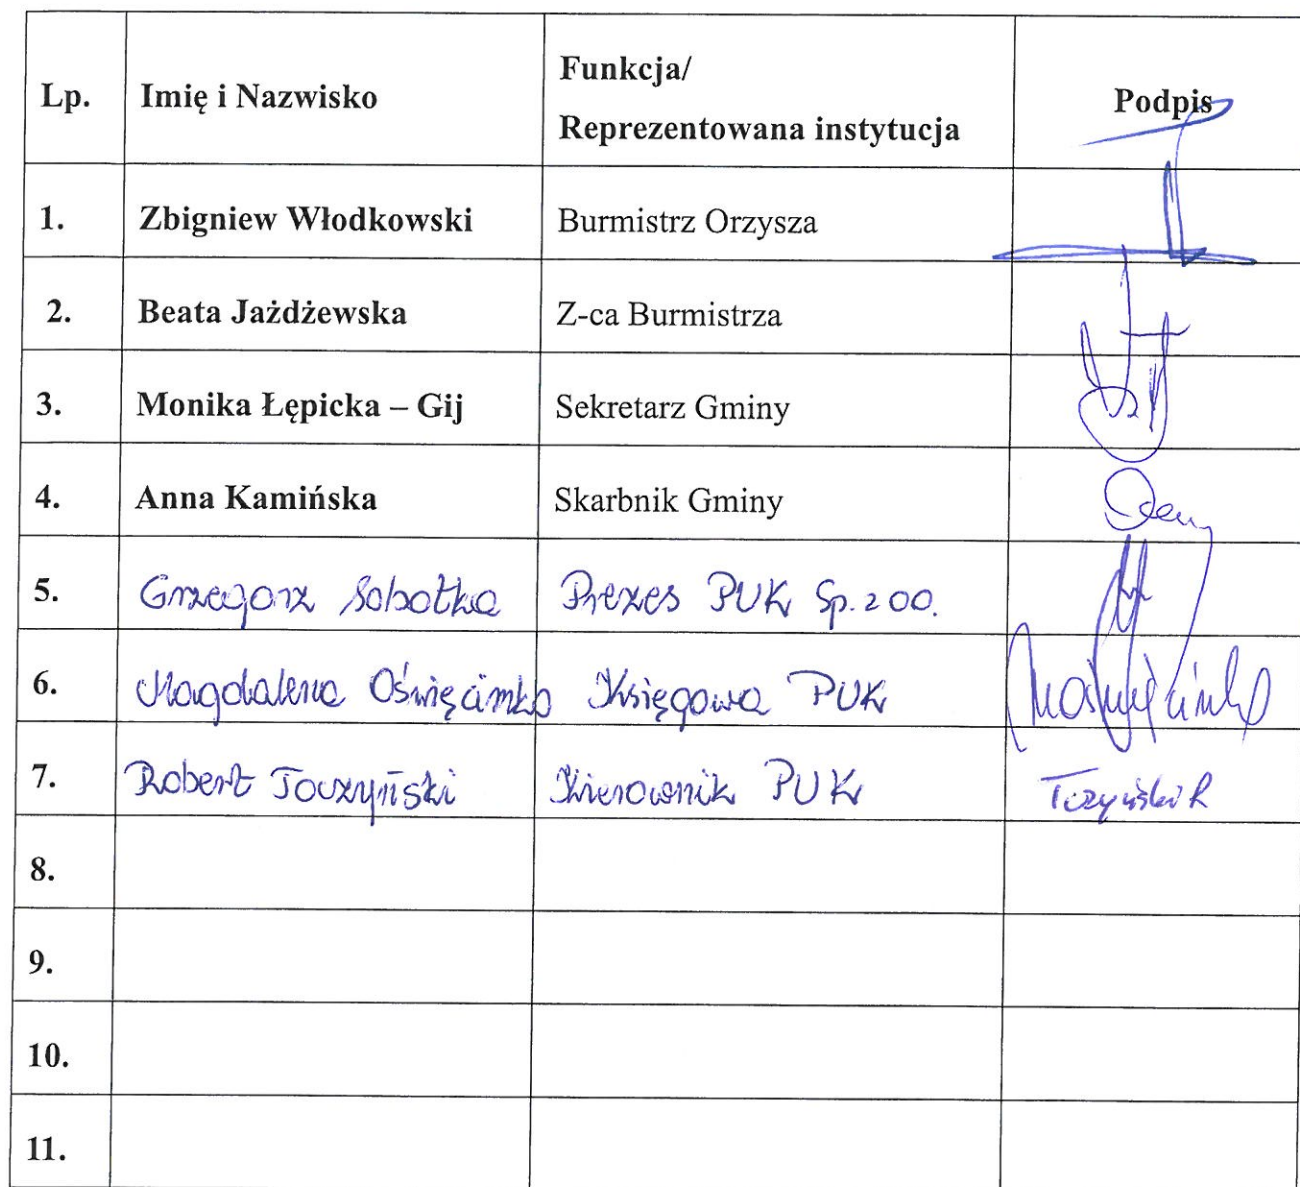 Lp. Imię i Nazwisko Funkcja/ Reprezentowana instytucja Podpis
1. Zbigniew Włodkowski Burmistrz Orzysza
2. Beata Jażdżewska Z-ca Burmistrza
3. Monika Łępicka – Gij Sekretarz Gminy
4. Anna Kamińska Skarbnik Gminy
5. Grzegorz Sobotka Prezes PUK Sp. z oo.
6. Magdalena Oświęcimka Księgowa PUK
7. Robert Toczyński Kierownik PUK
8.
9.
10.
11.